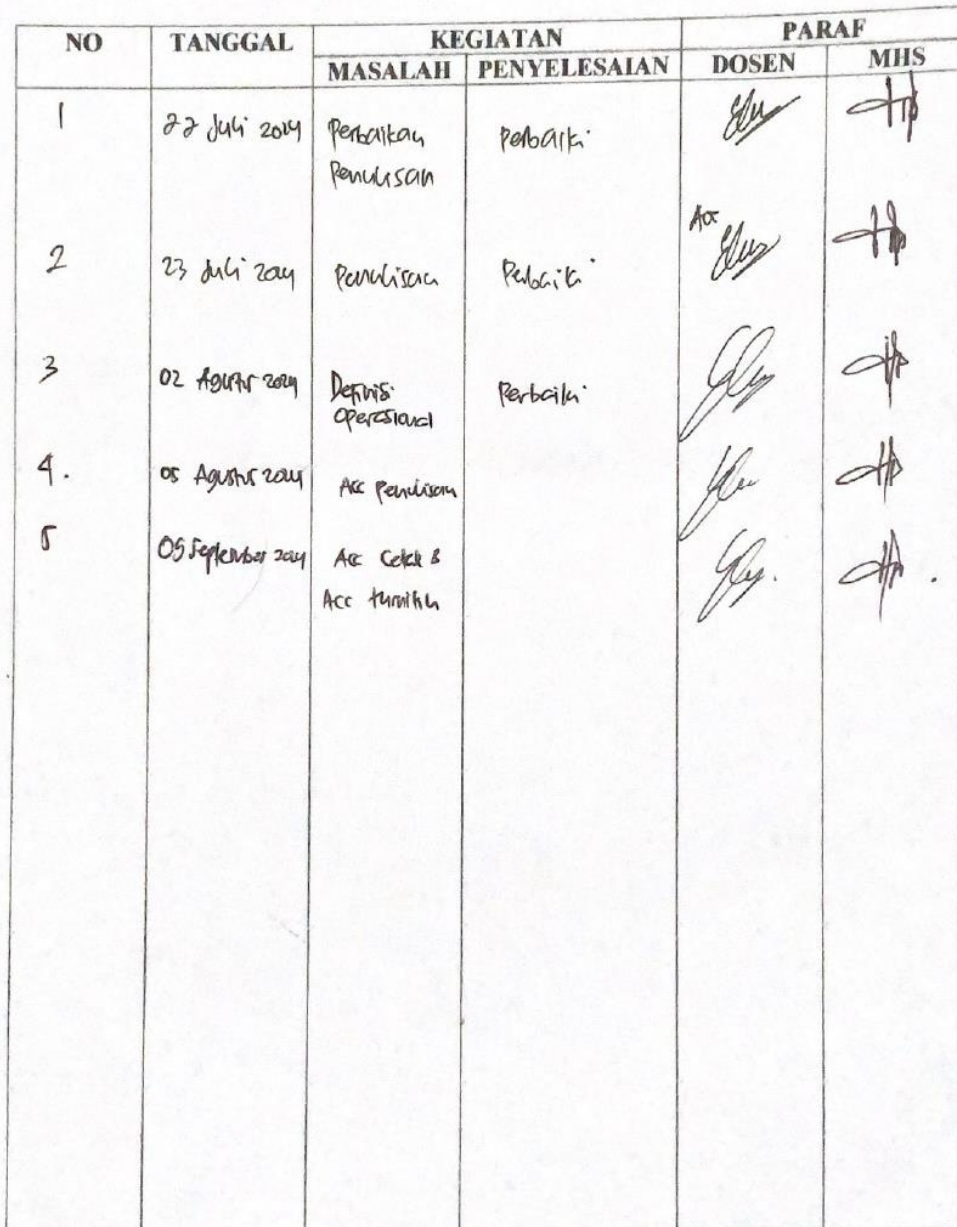 NO TANGGAL KEGIATAN PARAF
MASALAH PENYELESAIAN DOSEN MHS
1 22 Juli 2024 Perbaikan Perbaiki
Penulisan
Acc
2 23 Juli 2024 Penulisan Perbaiki
3 02 Agustus 2024 Definisi Perbaiki
Operasional
4. 05 Agustus 2024 Acc Penulisan
5 05 September 2024 Acc Cetak &
Acc turnitin